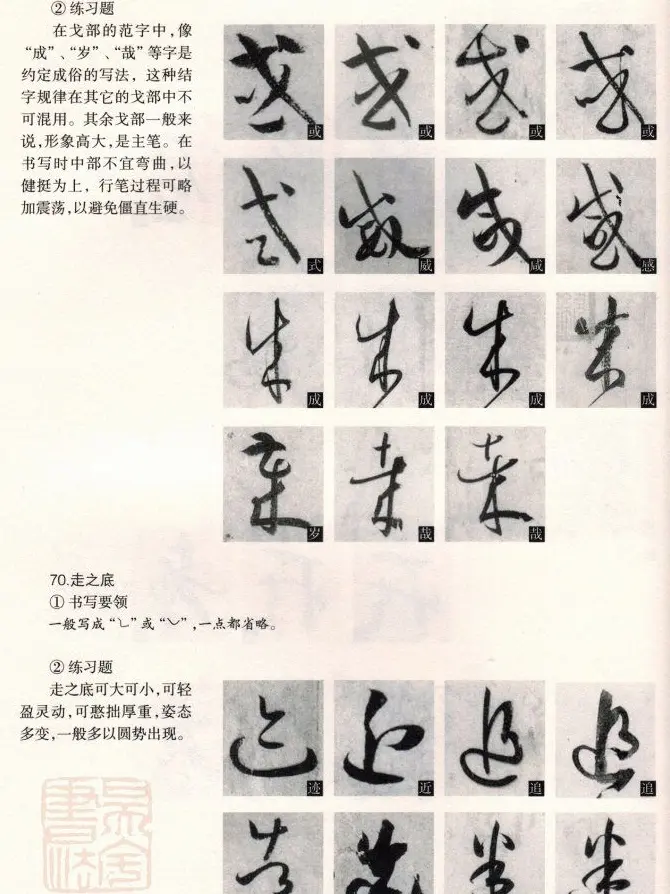 ② 练习题
在戈部的范字中,像
“成”、“岁”、“哉”等字是
约定成俗的写法，这种结
字规律在其它的戈部中不
可混用。其余戈部一般来
说,形象高大,是主笔。在
书写时中部不宜弯曲,以
健挺为上，行笔过程可略
加震荡,以避免僵直生硬。
或 或 或 或
式 威 咸 感
成 成 成 成
岁 哉 哉
70.走之底
① 书写要领
一般写成“㇄”或“㇃”,一点都省略。
② 练习题
走之底可大可小,可轻
盈灵动,可憨拙厚重,姿态
多变,一般多以圆势出现。
迹 近 追 追